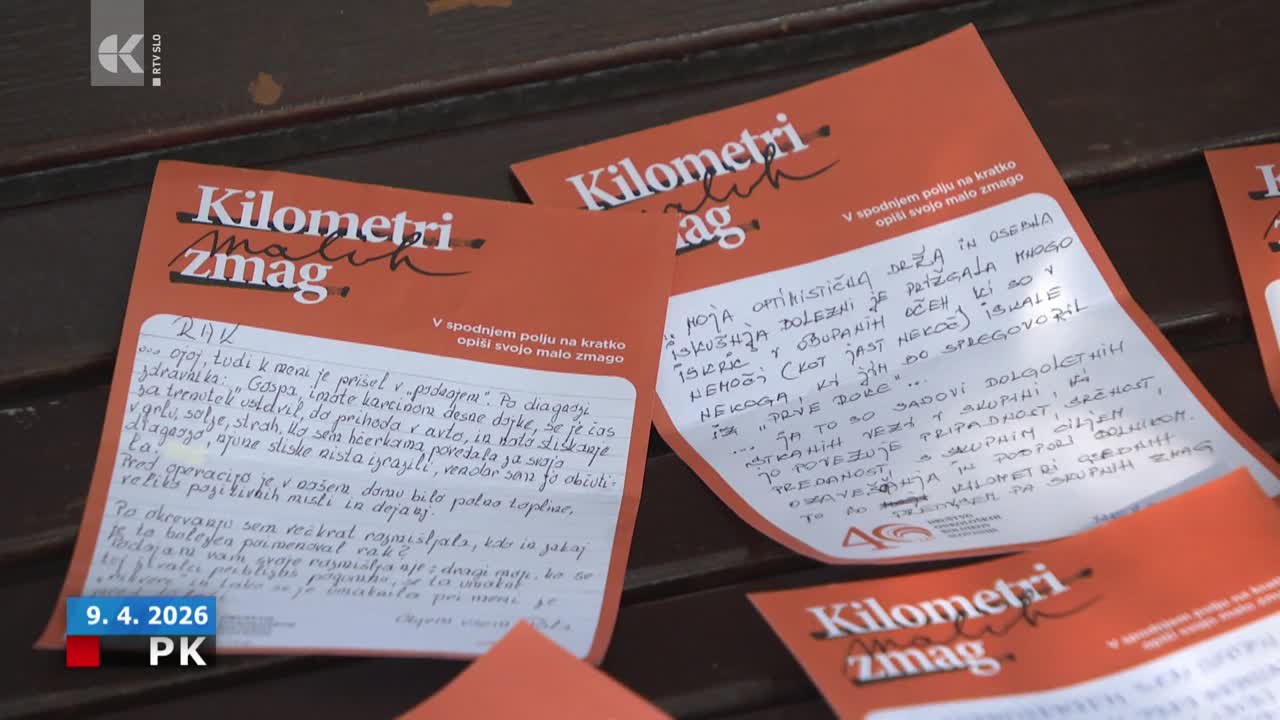 RTV SLO
Kilometri
malih
zmag
V spodnjem polju na kratko
opiši svojo malo zmago
RAK
... ojoj, tudi k meni je prišel v "podnajem". Po diagnozi
zdravnika: "Gospa, imate karcinom desne dojke, se je čas
za trenutek ustavil do prihoda v avto, in nato stiskanje
v grlu, solze, strah. Ko sem hčerkama povedala za svojo
diagnozo, njune stiske nista izrazili, vendar sem jo občuti-
la.
Pred operacijo je v našem domu bilo polno topline,
veliko pozitivnih misli in dejanj.
Po okrevanju sem večkrat razmišljala, kdo in zakaj
je to bolezen poimenoval rak?
Podajam vam svoje razmišljanje: dragi moji, ko se
tej živali približaš pogumno, se ta umakne
in tako se je umaknila pri meni že
Objem vsem
Kilometri
malih
zmag
V spodnjem polju na kratko
opiši svojo malo zmago
MOJA OPTIMISTIČNA DRŽA IN OSEBNA
IZKUŠNJA BOLEZNI JE PRIŽGALA MNOGO
ISKRIC V OBUPANIH OČEH, KI SO V
NEMOČI (KOT JAST NEKOČ) ISKALE
NEKOGA, KI JIM BO SPREGOVORIL
IZ "PRVE ROKE"...
... JA TO SO SADOVI DOLGOLETNIH
STKANIH VEZI V SKUPINI, KI
JO POVEZUJE PRIPADNOST, SRČNOST,
PREDANOST, S SKUPNIM CILJEM
OZAVEŠČANJA IN PODPORI BOLNIKOM.
TO SO KILOMETRI OSEBNIH
PREDVSEM PA SKUPNIH ZMAG
40 DRUŠTVO
ONKOLOŠKIH
BOLNIKOV
SLOVENIJE
Kilometri
malih
zmag
V spodnjem polju na kratko
opiši svojo malo zmago
9. 4. 2026
PK